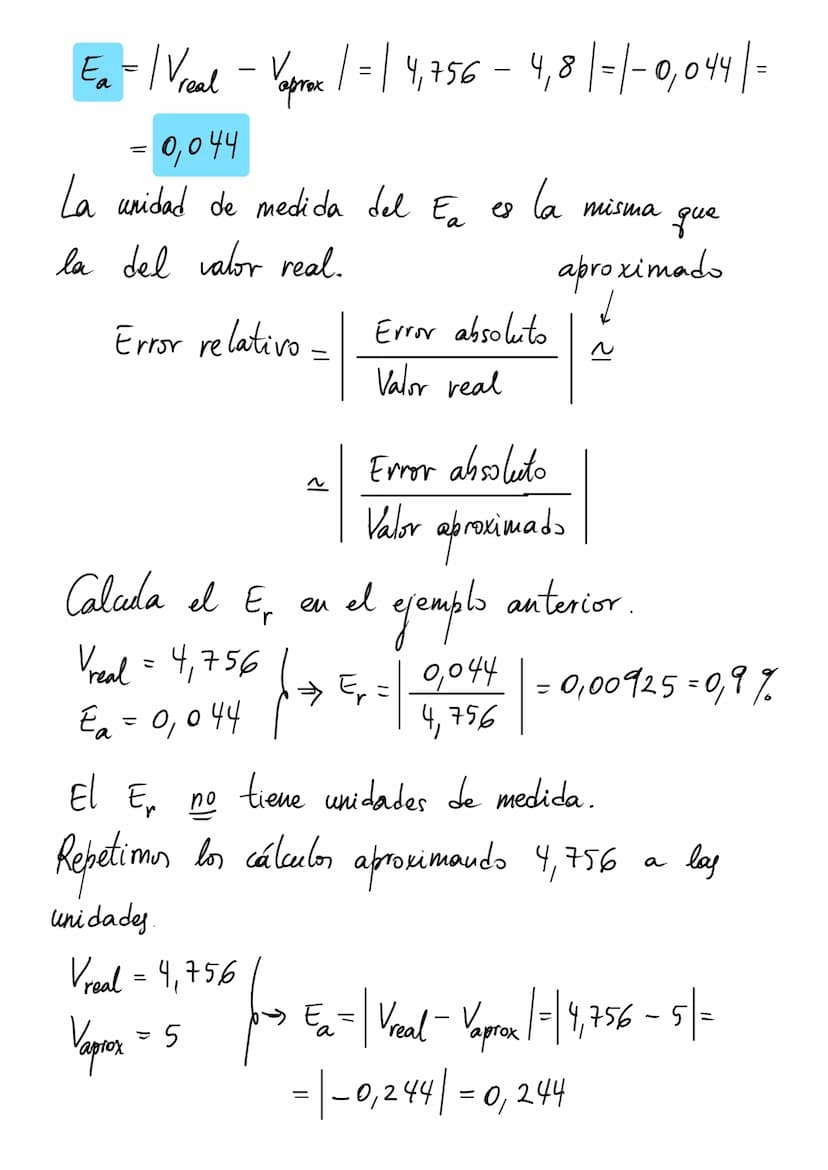 Ea = |Vreal - Vaprox| = |4,756 - 4,8| = |-0,044| =
= 0,044
La unidad de medida del Ea es la misma que
la del valor real.
aproximado
↓
Error relativo = |Error absoluto / Valor real| ≃
≃ |Error absoluto / Valor aproximado|
Calcula el Er en el ejemplo anterior.
Vreal = 4,756
Ea = 0,044
⇒ Er = |0,044 / 4,756| = 0,00925 = 0,9 %
El Er no tiene unidades de medida.
Repetimos los cálculos aproximando 4,756 a las
unidades.
Vreal = 4,756
Vaprox = 5
→ Ea = |Vreal - Vaprox| = |4,756 - 5| =
= |-0,244| = 0,244